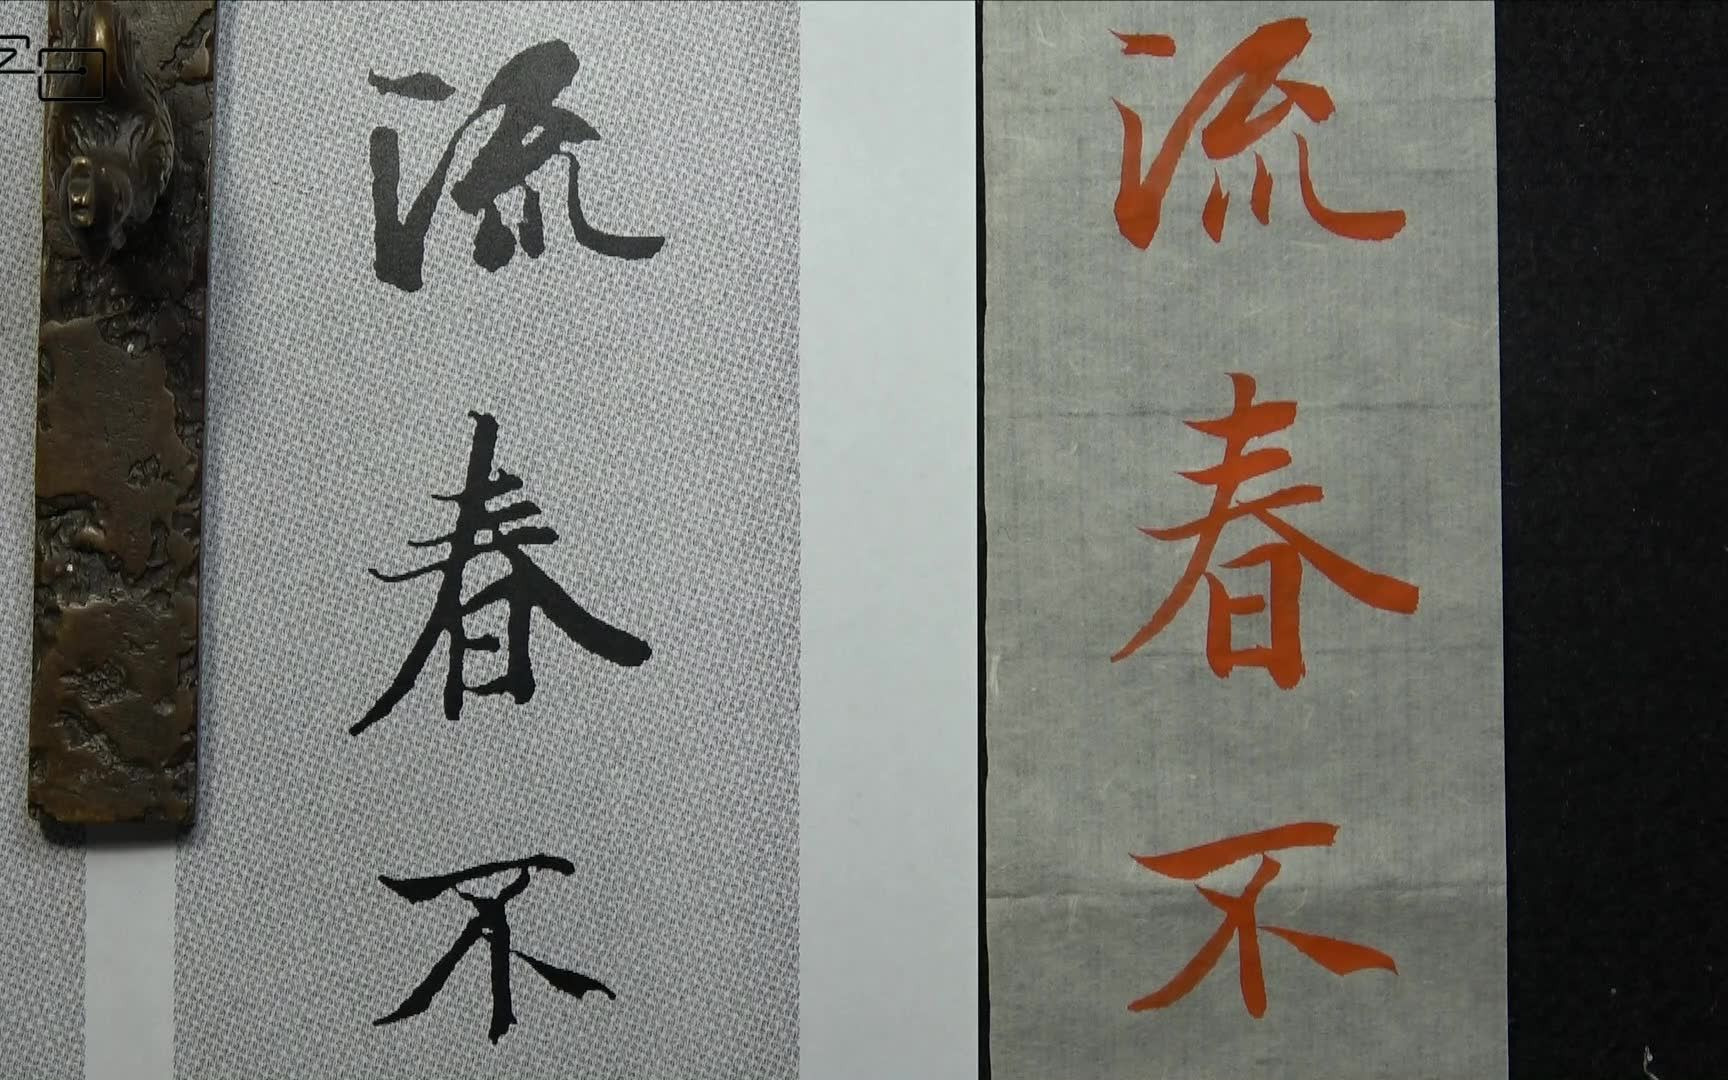 流春不
流春不